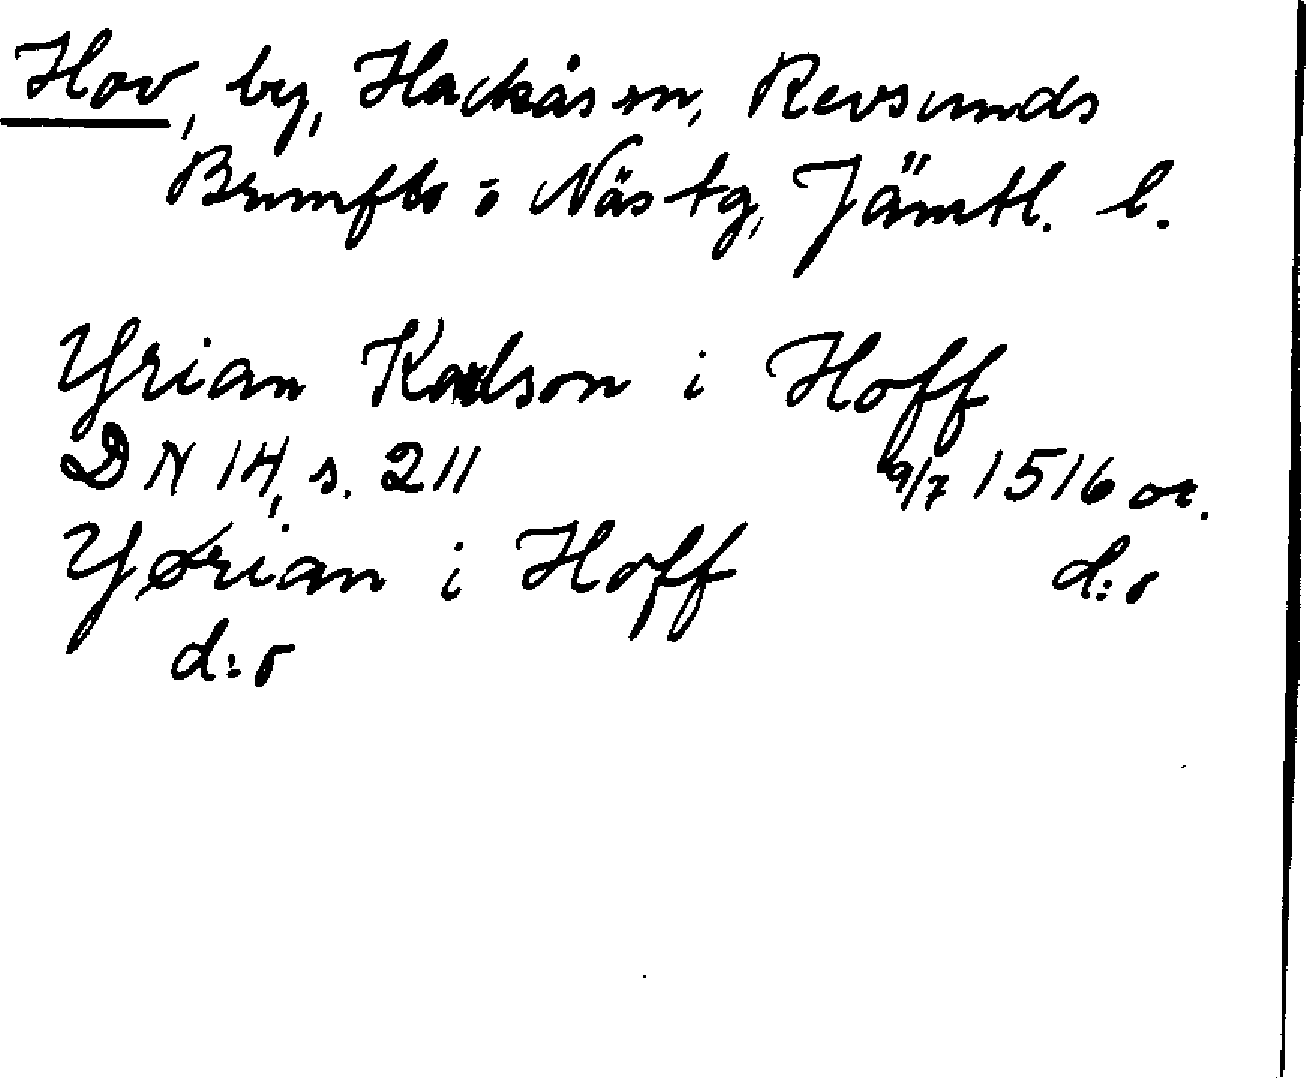 Hov, by, Hackås sn, Revsunds
Brunflo o Näs tg, Jämtl. l.
Yrian Karlson i Hoff
DN 14, s. 211 9/7 1516 or.
Yørian i Hoff d:o
d:o